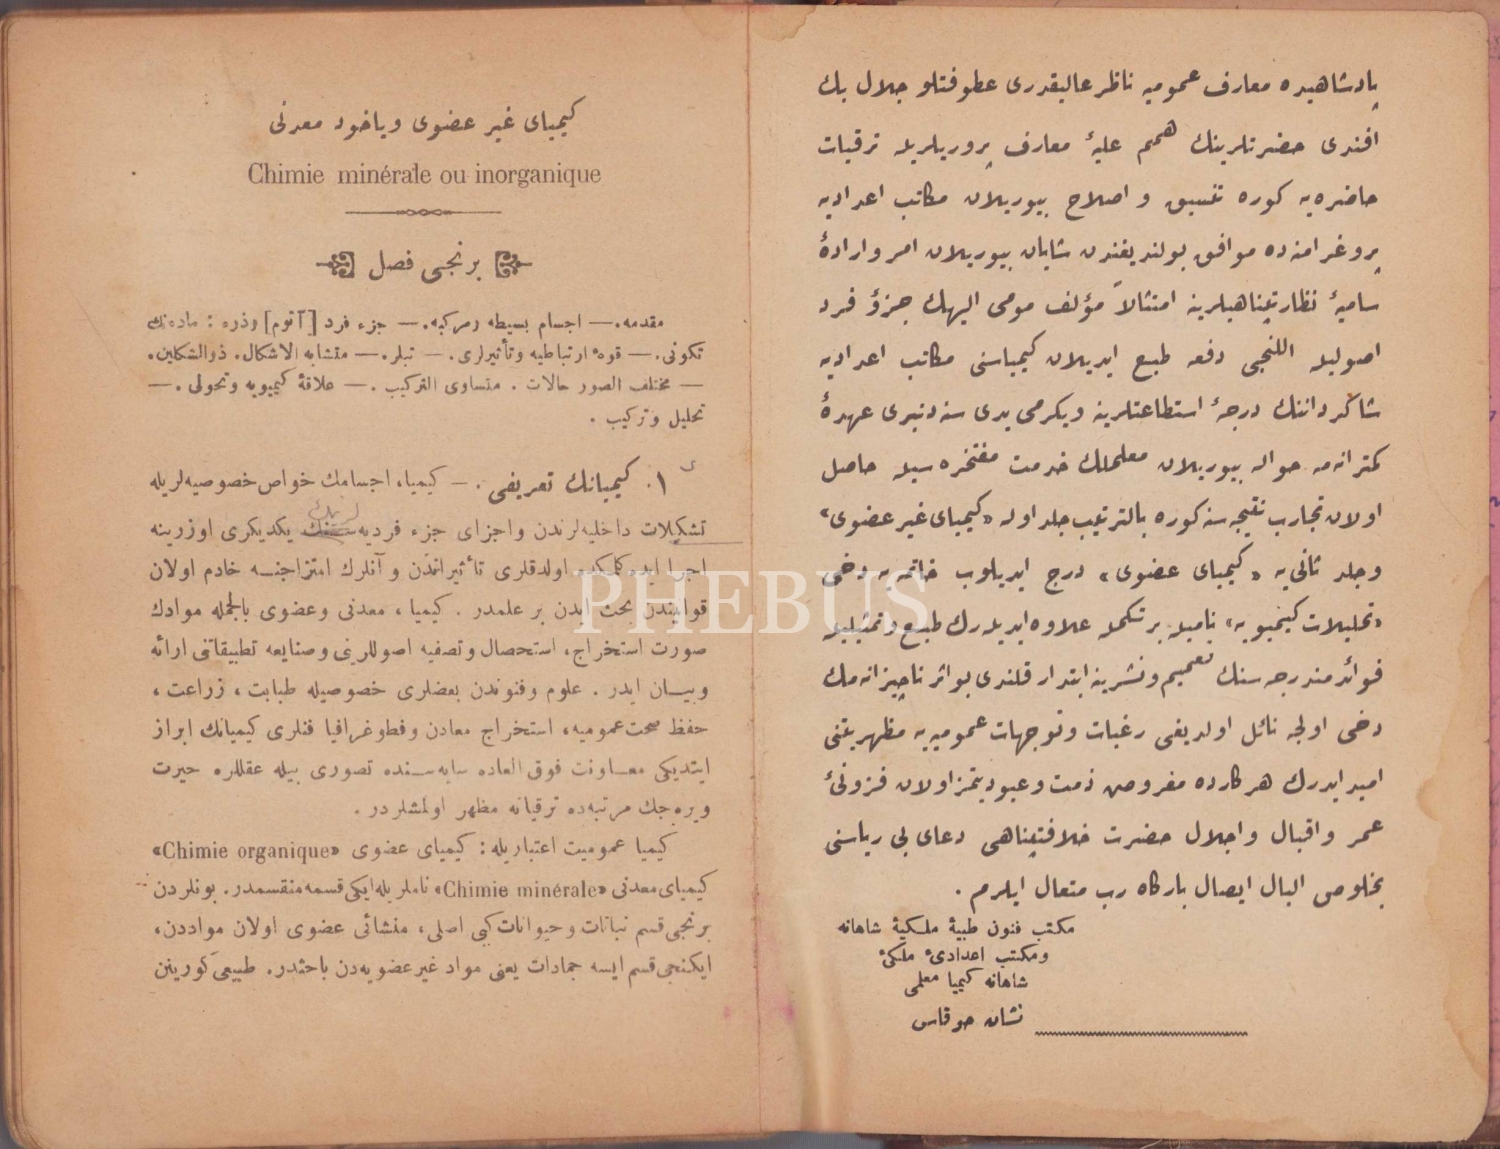 پادشاهیده معارف عمومیه ناظر عالیقدری عطوفتلو جلال بك
افندی حضرتلرینك همم علیهٔ معارف پروریلریله ترقیات
حاضره‌یه كوره تنسیق و اصلاح بیوریلان مكاتب اعدادیه
پروغرامنده موافق بولندیغندن شایان بیوریلان امر و ارادهٔ
سامیهٔ نظارتپناهیلرینه امتثالاً مؤلف مومی الیهك جزؤ فرد
اصولیله اللنجی دفعه طبع ایدیلان كیمیاسنی مكاتب اعدادیه
شاكرداننك درجهٔ استطاعتلرینه ویكرمی یدی سنه‌دنبری عهدهٔ
كمترانه‌مه حواله بیوریلان معلملك خدمت مفتخره‌سیله حاصل
اولان تجارب نتیجه‌سنه كوره بالترتیب جلد اوله «كیمیای غیر عضوی»
وجلد ثانی‌یه «كیمیای عضوی» درج ایدیلوب خاتمه‌یه دخی
«تحلیلات كیمیویه» نامیله بر تكمله علاوه ایدیله‌رك طبع وتمثیلیله
فوائد مندرجه‌سنك تعمیم ونشرینه ابتدار قلندی بو اثر ناچیزانه‌مك
دخی اولجه نائل اولدیغی رغبات وتوجهات عمومیه‌یه مظهریتنی
امید ایدرك هر كارده مفروض ذمت وعبودیتمز اولان فزونئ
عمر و اقبال و اجلال حضرت خلافتپناهی دعای بی ریاسنی
بخلوص البال ایصال باركاه رب متعال ایلرم .
مكتب فنون طبیهٔ ملكیهٔ شاهانه
ومكتب اعدادئ ملكئ
شاهانه كیمیا معلمی
نشان جوقاس
كیمیای غیر عضوی ویاخود معدنی
Chimie minérale ou inorganique
برنجی فصل
مقدمه. — اجسام بسیطه ومركبه. — جزء فرد [آتوم] وذره : ماده‌نك
تكونی. — قوهٔ ارتباطیه وتأثیرلری. — تبلر. — متشابه الاشكال. ذوالشكلین.
— مختلف الصور حالات . متساوی التركیب . — علاقهٔ كیمیویه وتحولی . —
تحلیل وتركیب .
١. كیمیانك تعریفی . — كیمیا، اجسامك خواص خصوصیه‌لریله
تشكیلات داخلیه‌لرندن واجزای جزء فردیه‌سنك یكدیكری اوزرینه
اجرا ایده‌كلمكده اولدقلری تأثیراتدن و آنلرك امتزاجنه خادم اولان
قوانیندن بحث ایدن بر علمدر . كیمیا ، معدنی وعضوی بالجمله موادك
صورت استخراج، استحصال وتصفیه اصوللرینی وصنایعه تطبیقاتنی ارائه
وبیان ایدر . علوم وفنوندن بعضلری خصوصیله طبابت ، زراعت ،
حفظ صحت عمومیه، استخراج معادن وفطوغرافیا فنلری كیمیانك ابراز
ایتدیكی معاونت فوق العاده سایه‌سنده تصوری بیله عقللره حیرت
ویره‌جك مرتبه‌ده ترقیاته مظهر اولمشلردر .
كیمیا عمومیت اعتباریله : كیمیای عضوی «Chimie organique»
كیمیای معدنی «Chimie minérale» ناملریله ایكی قسمه منقسمدر. بونلردن
برنجی قسم نباتات وحیوانات كبی اصلی، منشائی عضوی اولان مواددن،
ایكنجی قسم ایسه جمادات یعنی مواد غیر عضویه‌دن باحثدر. طبیعی كورینن
PHEBUS